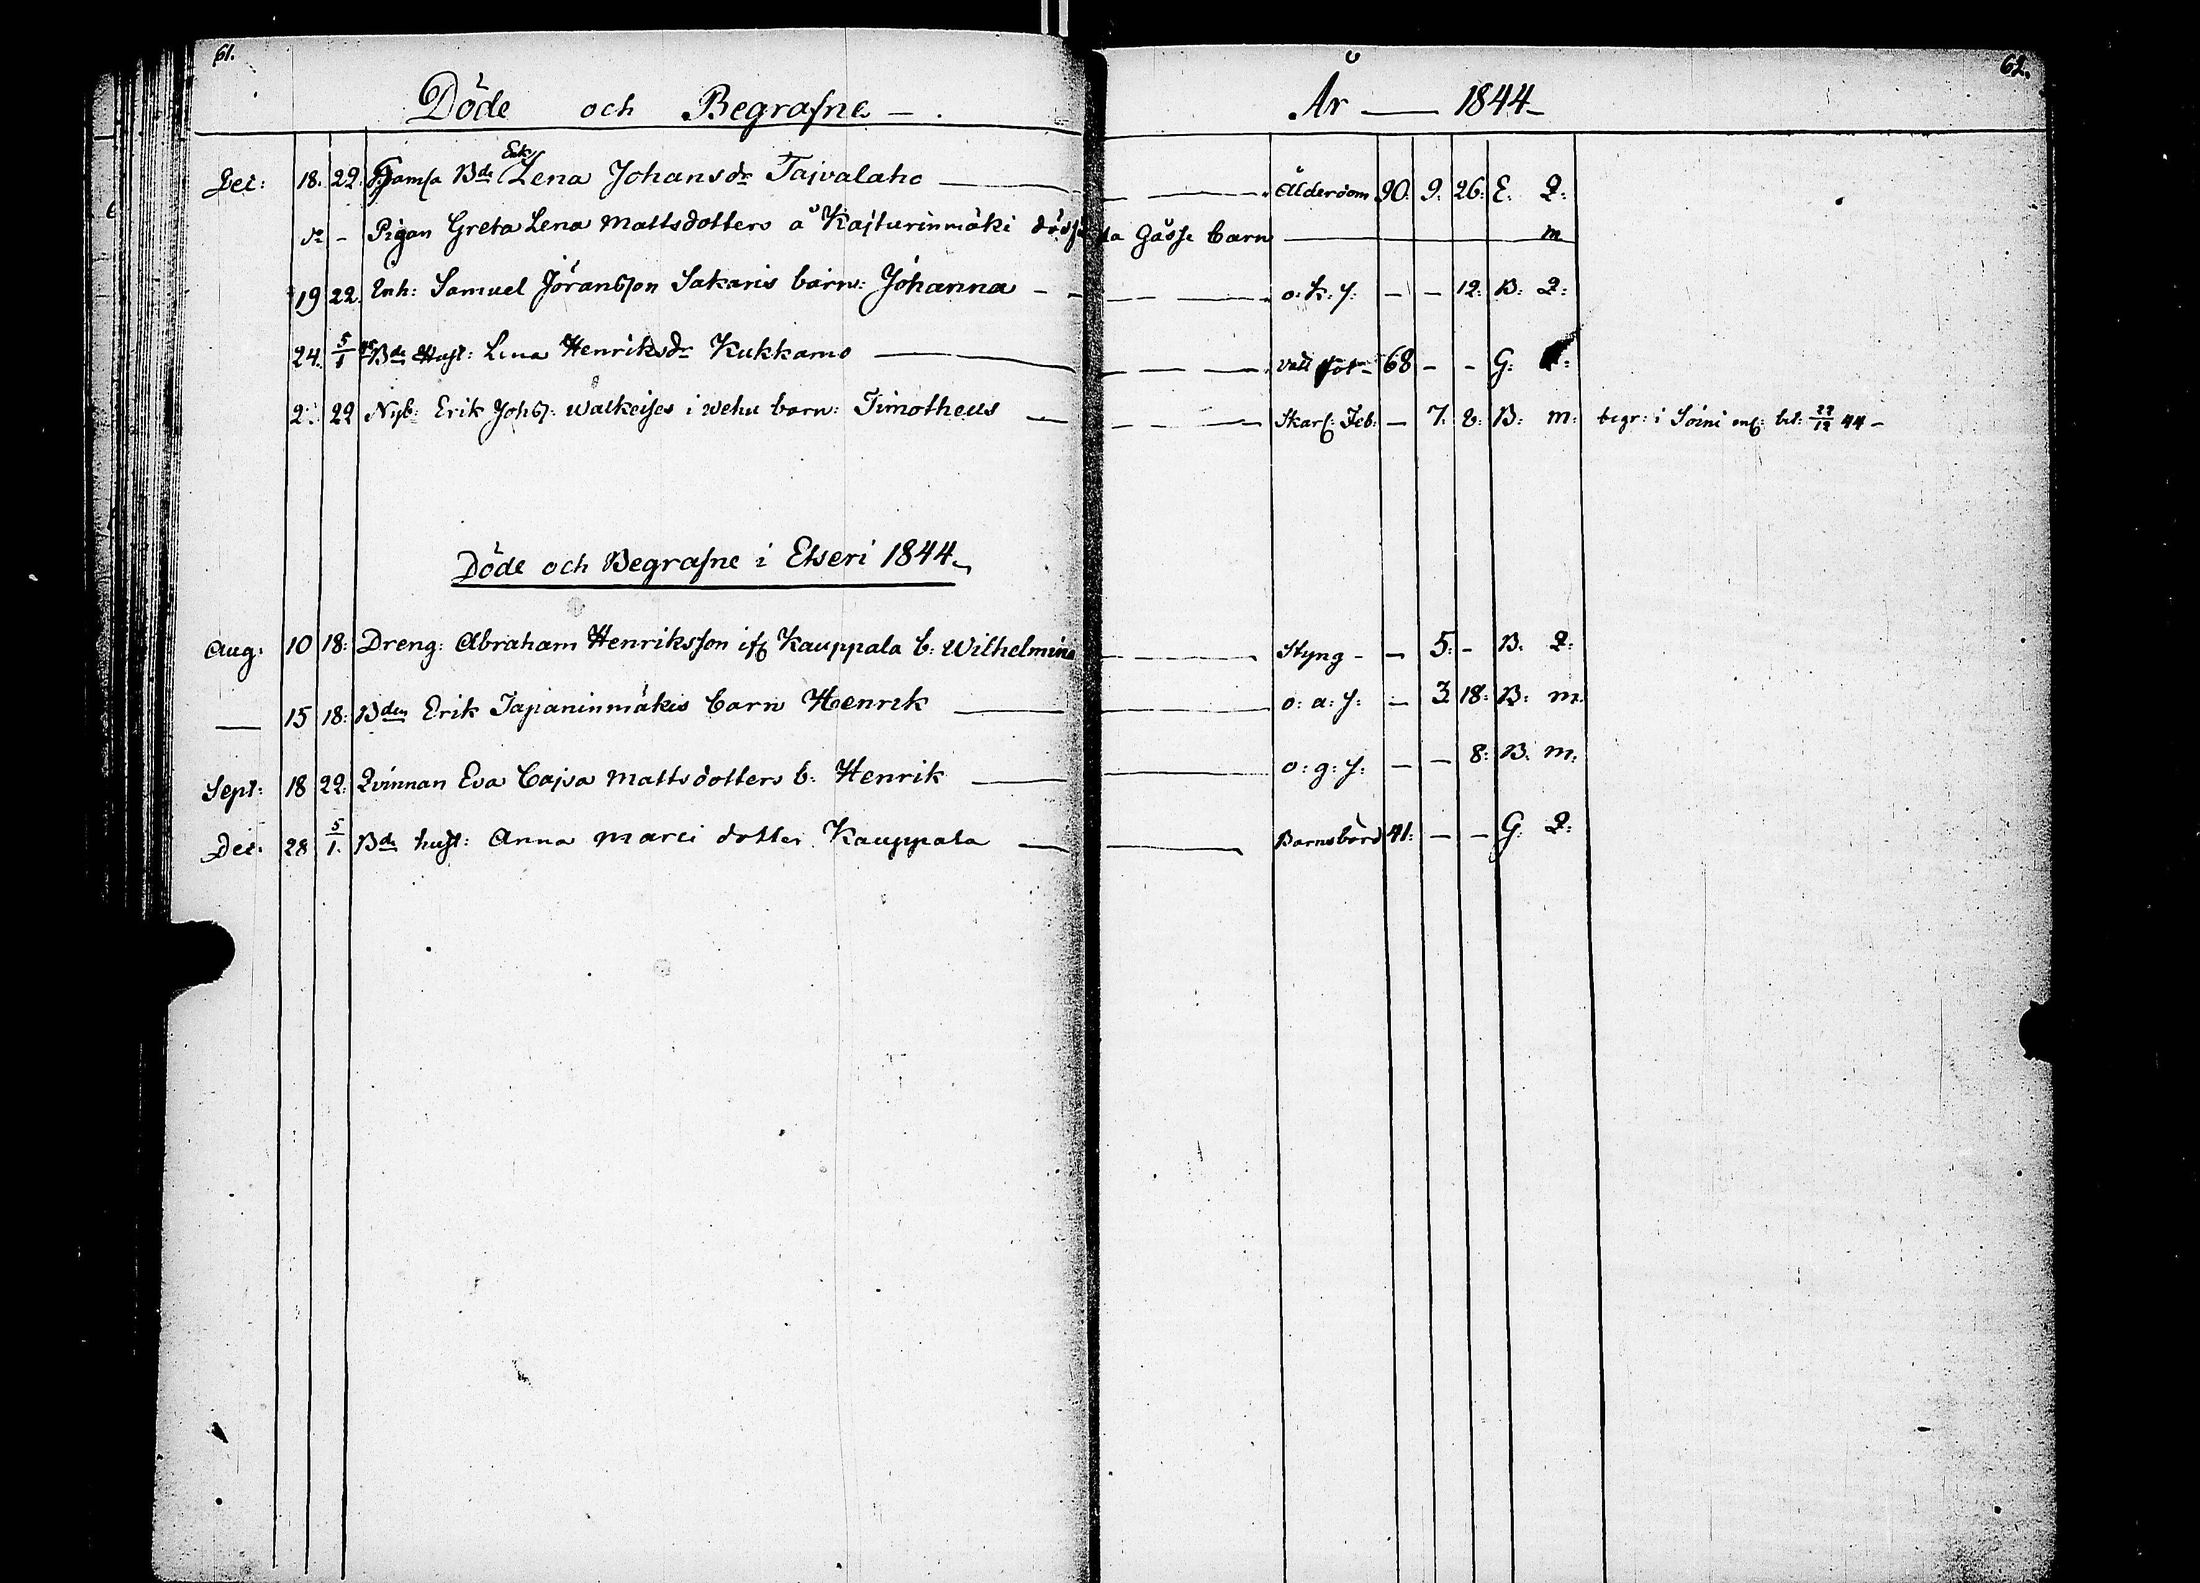 61.
62.
Döde och Begrafne —.
År — 1844 –
Dec: 18. 22. Gamla Bde Enk. Lena Johansdr Taivalaho — Ålderdom 90. 9. 26. E. Q:
dº – Pigan Greta Lena Mattsdotters å Kaiturinmäki dödfödda Gåsse barn — m
19 22. Inh: Samuel Jöransson Sakaris barn: Johanna — o: k: s: — — 12: B: Q:
24. 5/1 Bde Hust: Lena Henriksdr Kukkarno — 68 – – G:
2. 22 Nyb: Erik Johss: Walkeises i Wehu barn: Timotheus — Skarl: Feb: — 7. 8: B: m: begr: i Soini enl: bet: 22/12 44 –
Döde och Begrafne i Etseri 1844.
Aug. 10 18: Dreng: Abraham Henriksson ifr Kauppala b: Wilhelmina — Styng – — 5: – B. Q:
— 15 18: Bden Erik Tapaninmäkis barn Henrik — o: a: s: — 3 18: B: m.
Sept: 18 22: Qvinnan Eva Cajsa Mattsdotters b: Henrik — o: g: s: — — 8: B. m:
Dec. 28 5/1. Bde hust: Anna Marci dotter Kauppala — Barnsbörd 41: — — G: Q: